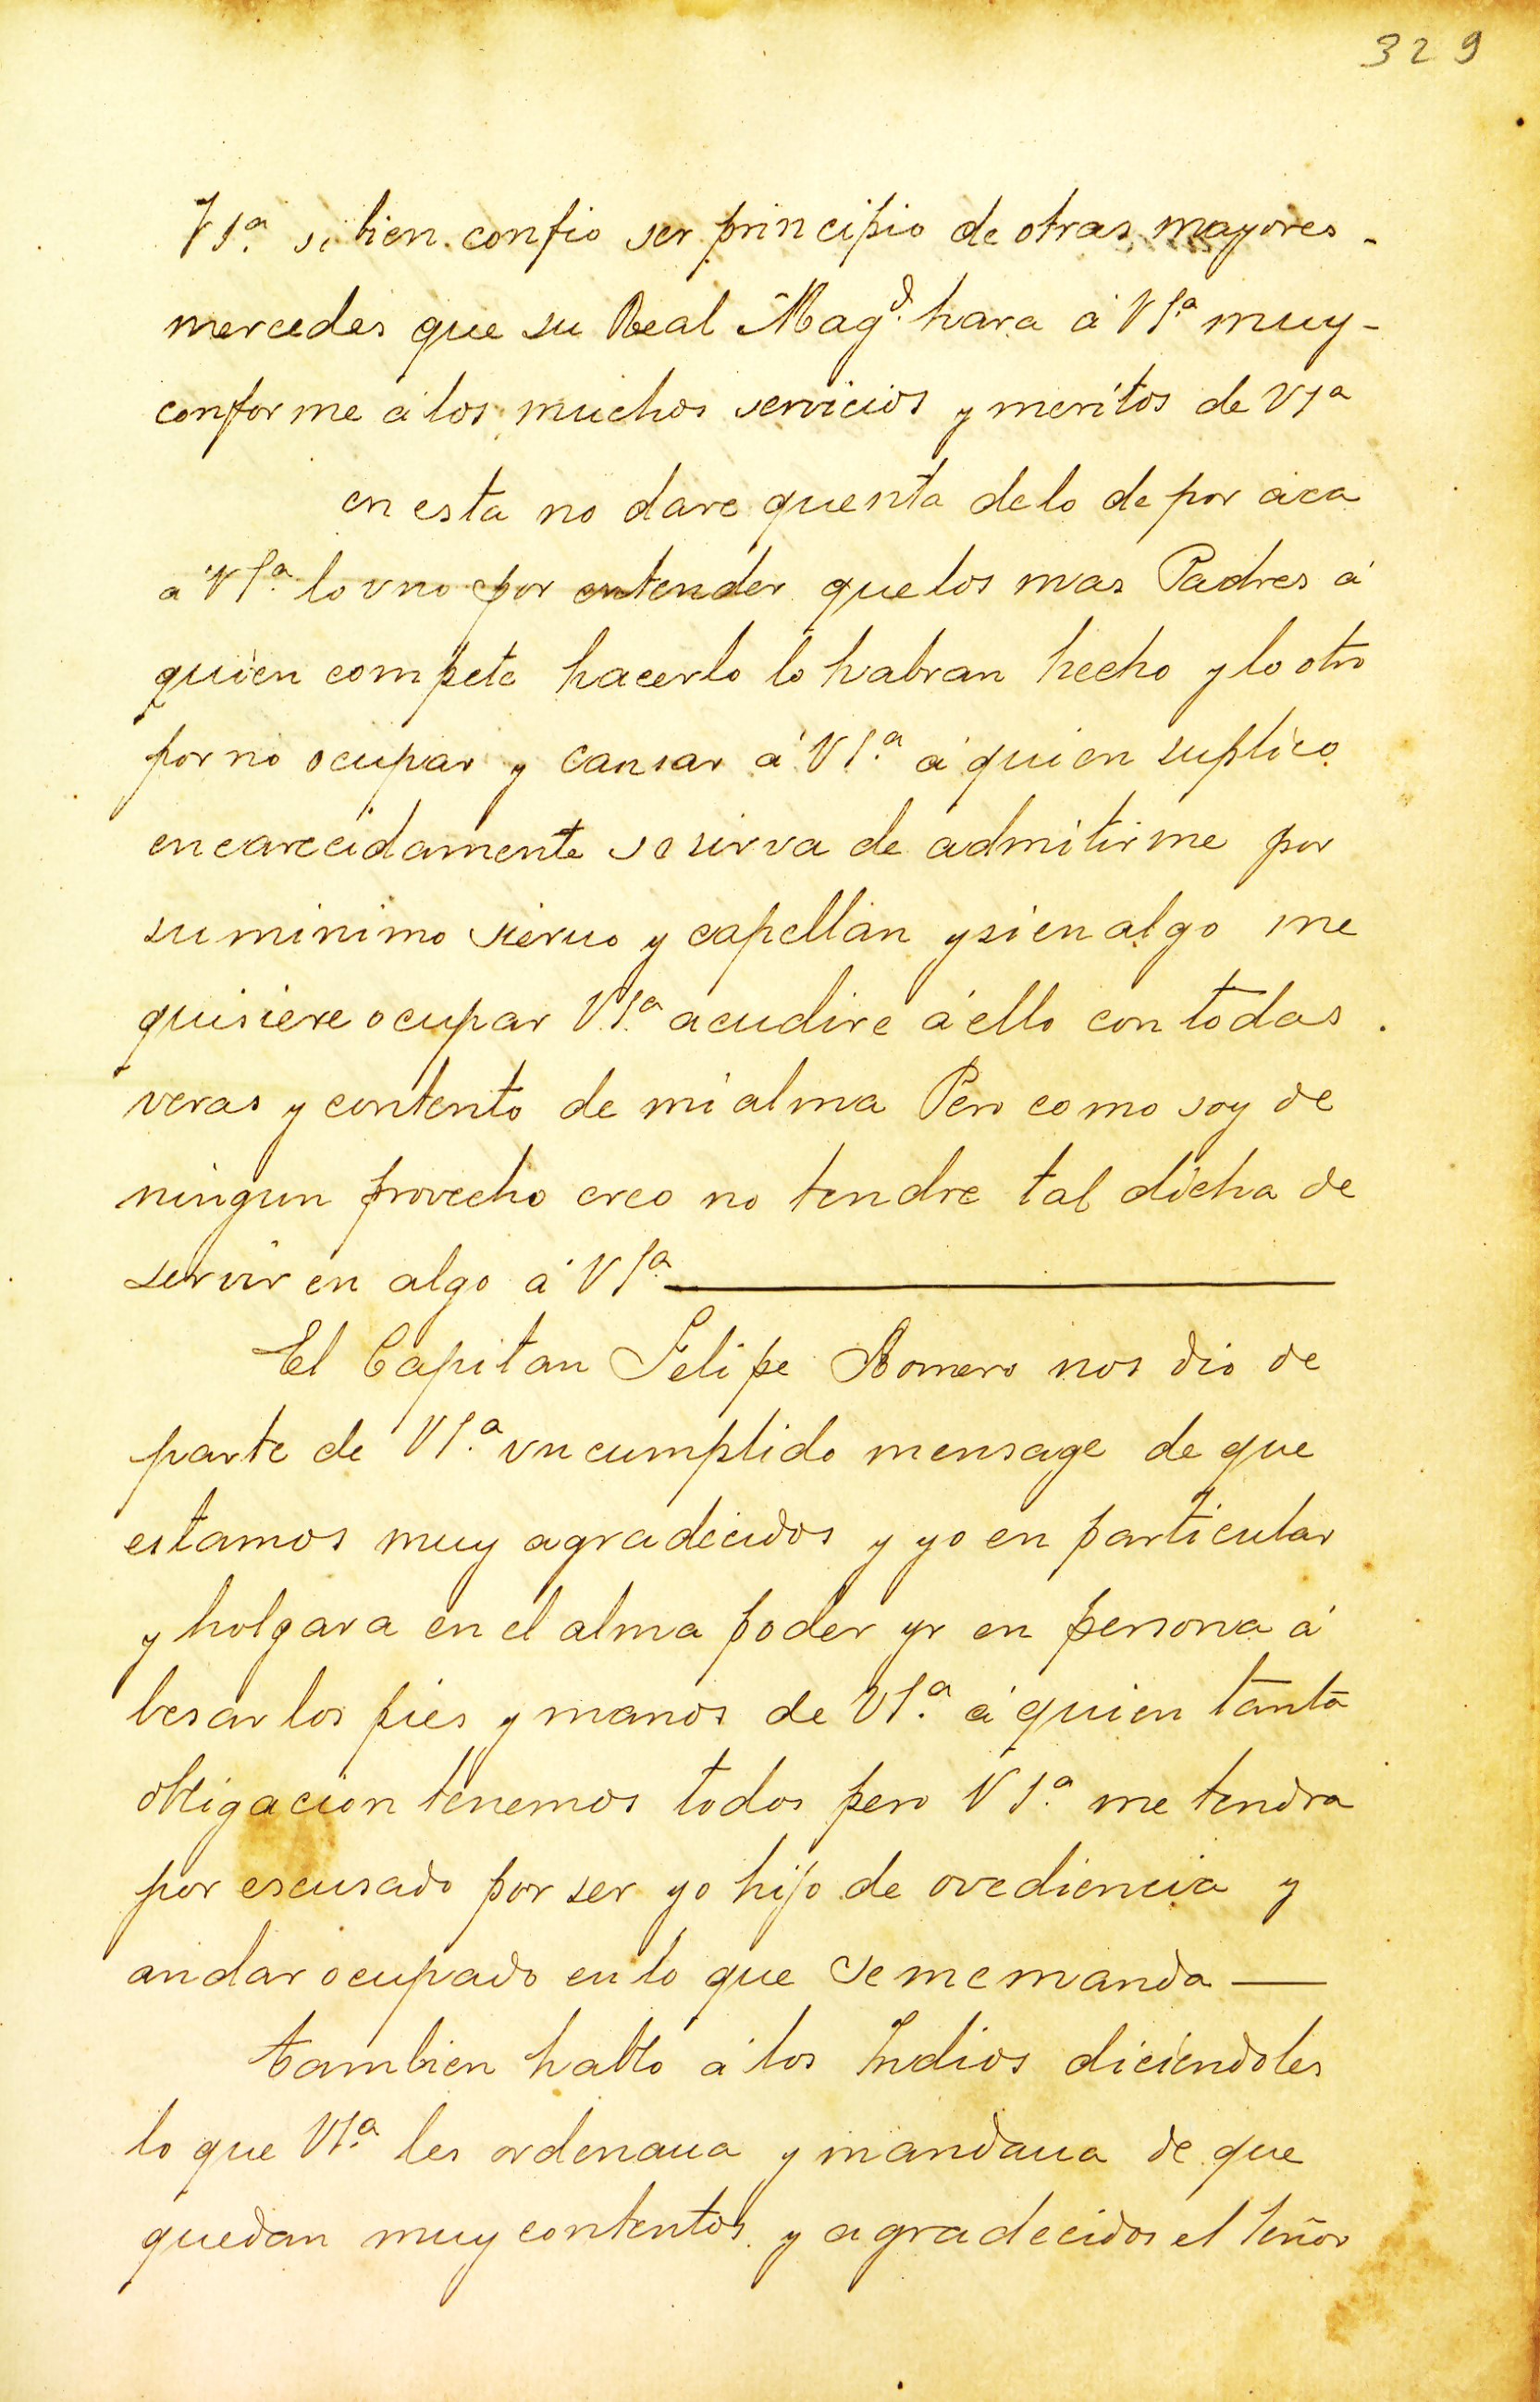 329
VSª. si bien confio ser principio de otras mayores -
mercedes que su Real Magᵈ. hara á VSª muy -
conforme á los muchos servicios y meritos de VSª
en esta no dare quenta delo de por aca
a VSª. lo vno por entender que los mas Padres á
quien compete hacerlo lo habran hecho y lo otro
por no ocupar y cansar á VSª. á quien suplico
encarecidamente se sirva de admitirme por
su minimo sieruo y capellan y si en algo me
quisiere ocupar VSª. acudire á ello con todas
veras y contento de mi alma Pero como soy de
ningun provecho creo no tendre tal dicha de
servir en algo á VSª.
El Capitan Felipe Romero nos dio de
parte de VSª. vn cumplido mensage de que
estamos muy agradecidos y yo en particular
y holgara en el alma poder yr en persona á
besar los pies y manos de VSª. á quien tanta
obligacion tenemos todos pero VSª. me tendra
por escusado por ser yo hijo de ovediencia y
andar ocupado en lo que se me manda —
tambien hablo á los Indios diciendoles
lo que VSª. les ordenaua y mandaua de que
quedan muy contentos y agradecidos el señor